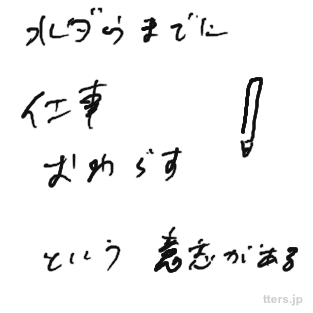 水ダウまでに
仕事
おわらす
という 意志がある
tters.jp